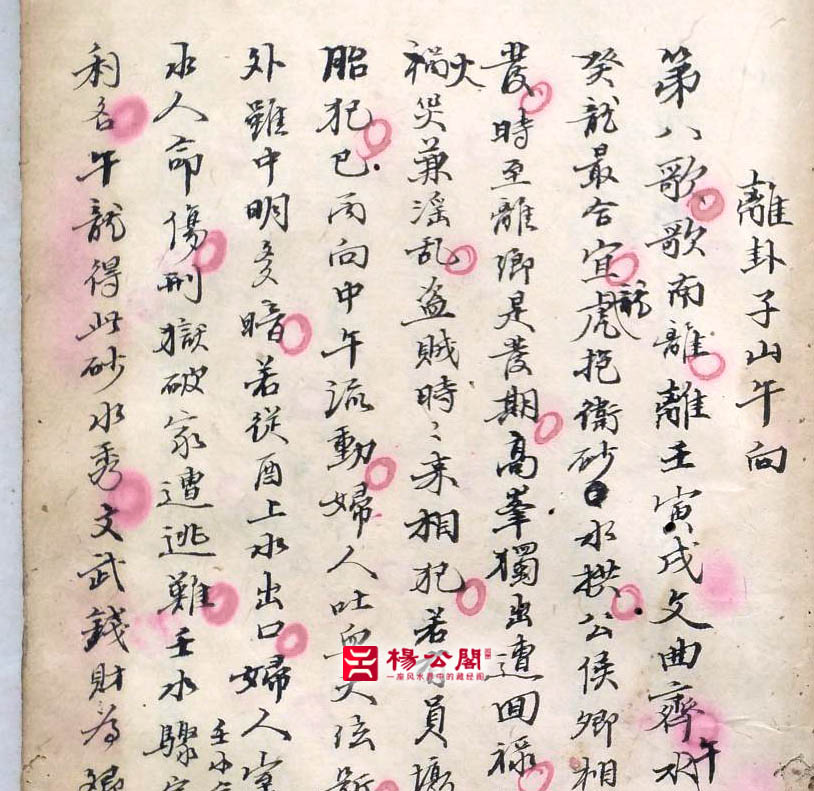 離卦子山午向
第八歌歌南離離壬寅戌文曲齊水午
癸龍最合宜虎龍抱衛砂水拱公侯卿相
發時至離鄉是發期高峯獨出遭回祿
禍火災兼淫乱盗賊時〻来相犯若有員墩
胎犯巳丙向中午流動婦人吐血
外雖中明多暗若從酉上水出口婦人
水人命傷刑獄破家遭逃難壬水驟
壬水
利名午龍得此砂水秀文武錢財為
楊公閣
一座风水界中的藏经阁